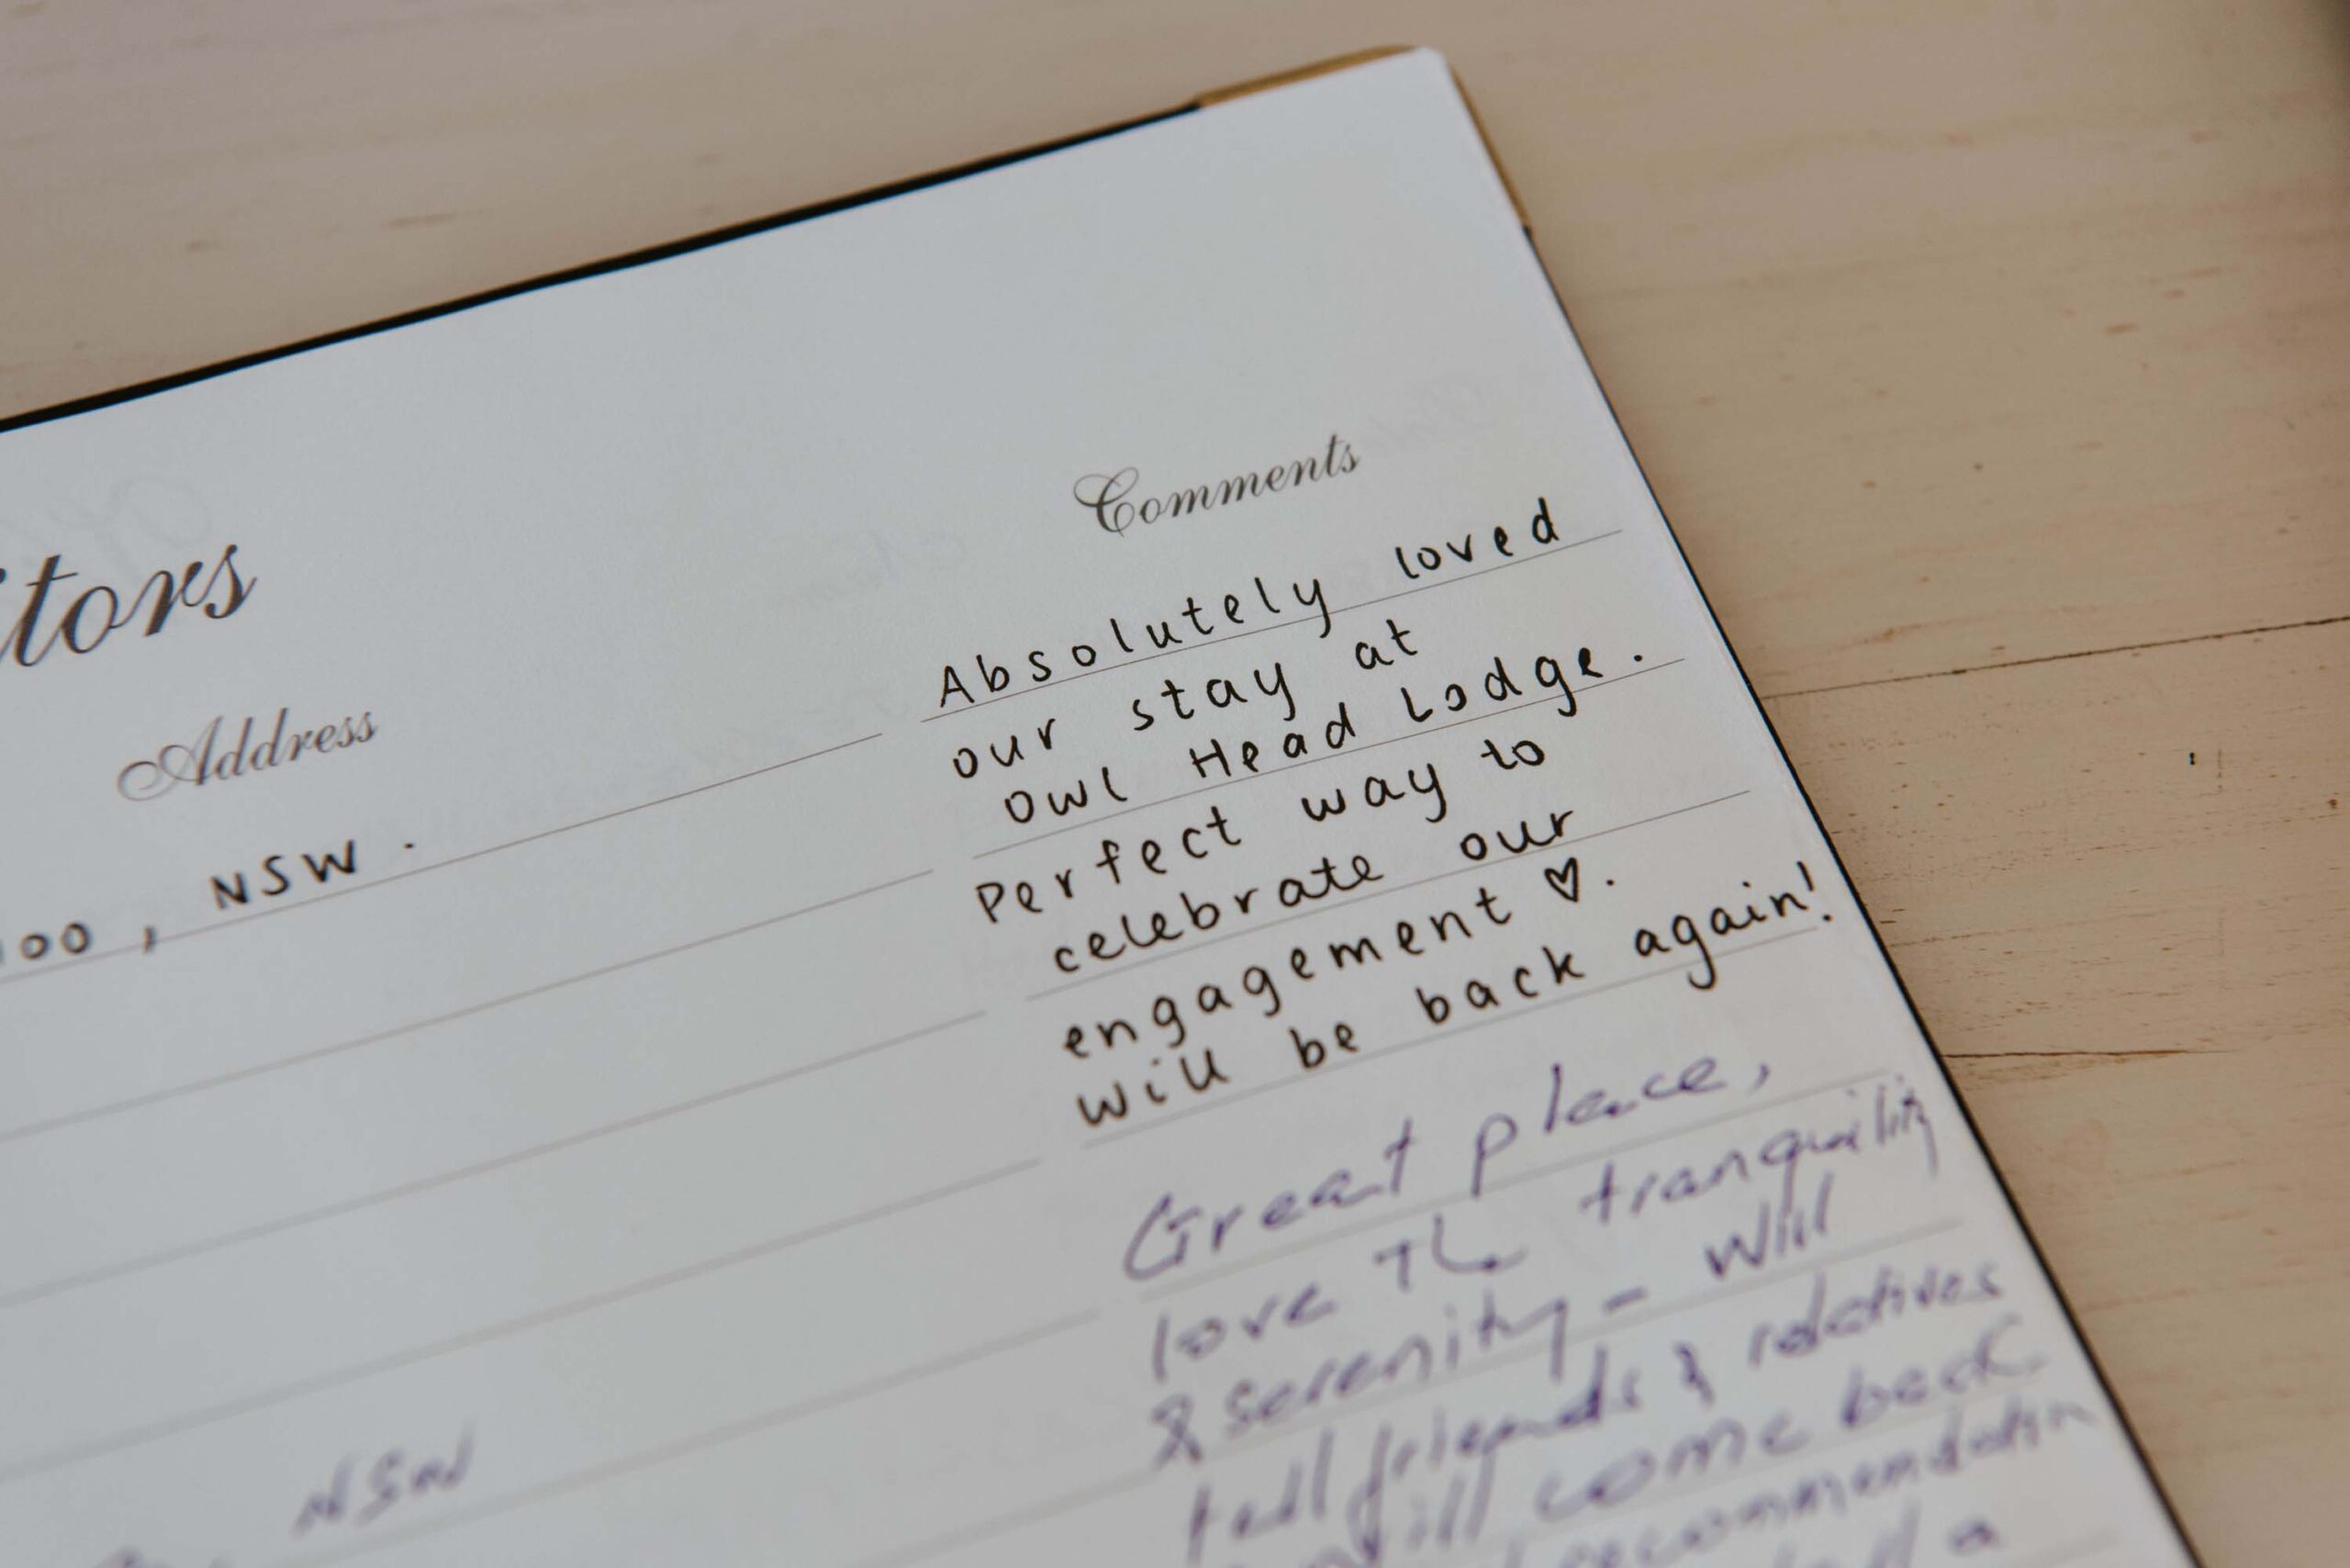 Comments
Address
NSW.
00,
Absolutely loved
our stay at
Owl Head Lodge.
Perfect way to
celebrate our
engagement ♡.
Will be back again!
Great place,
love the tranquility
& serenity - Will
tell friends & relatives
will come back
recommendation
a
NSW